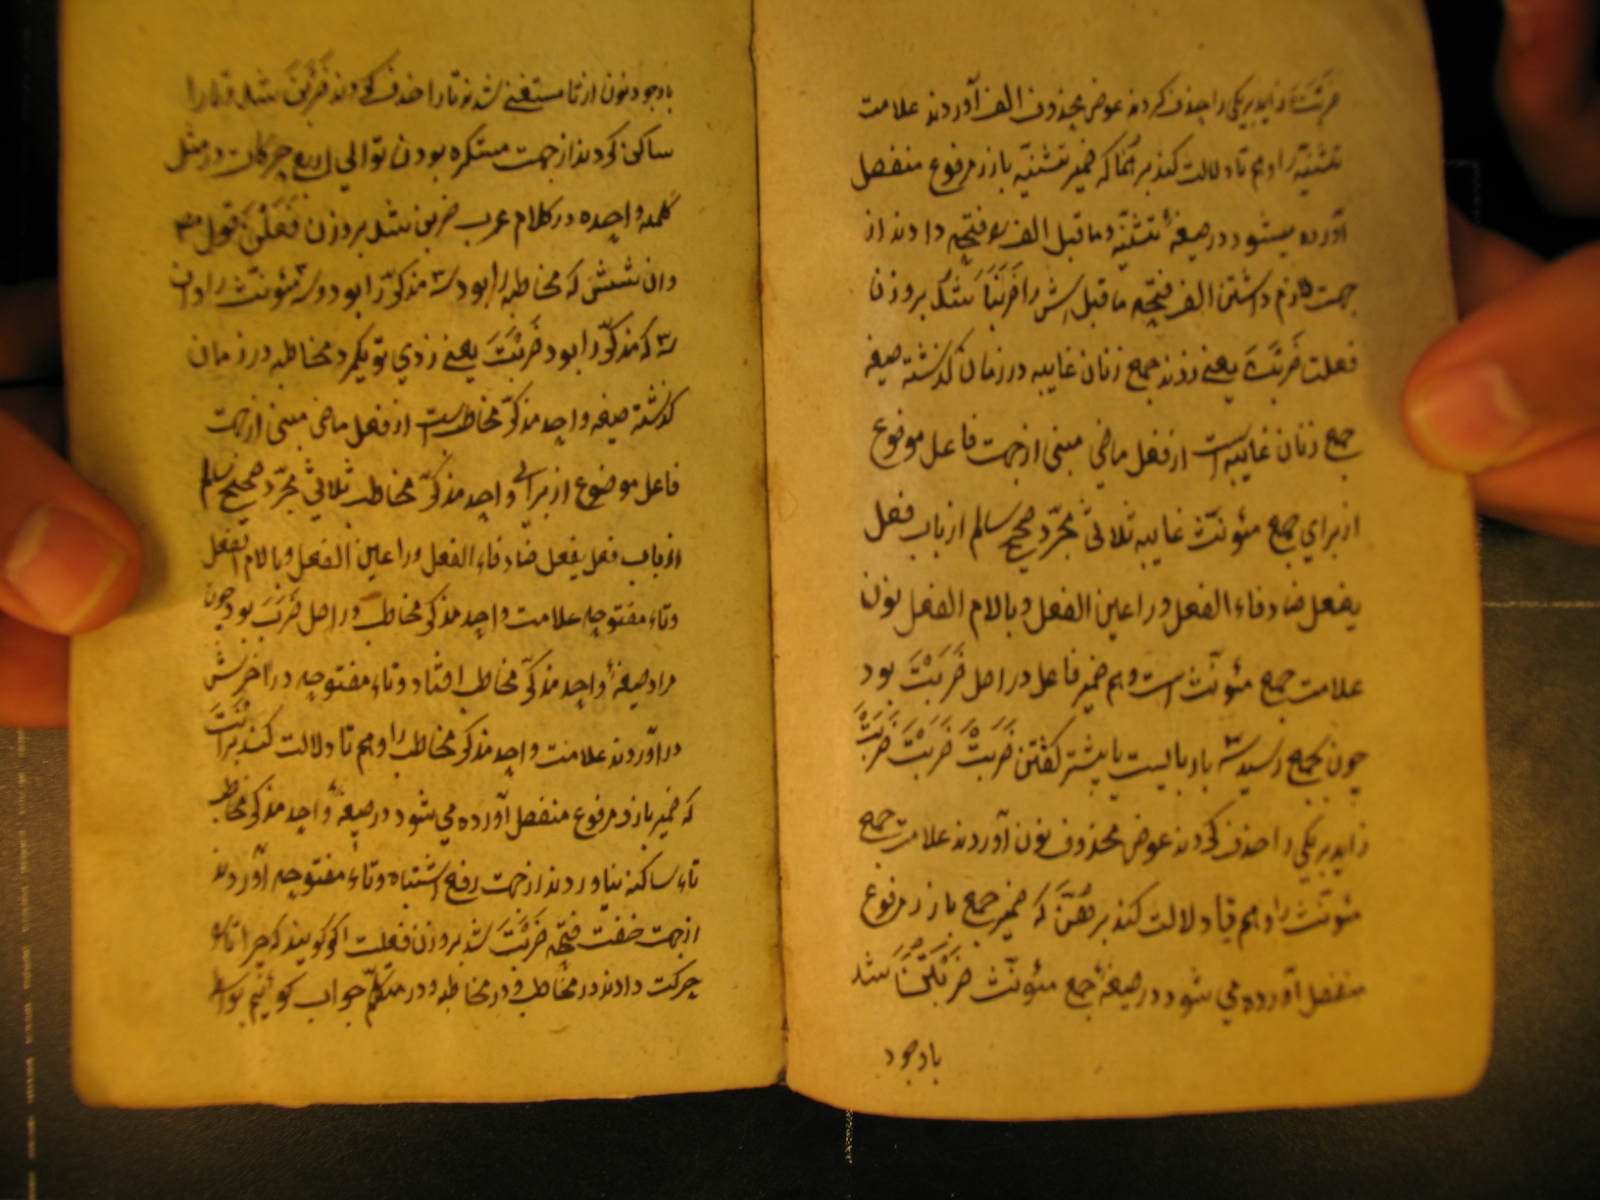 ضربت زایدبریکی را حذف کردند عوض محذوف الف آوردند علامت
تثنیه را و هم تا دلالت کند بر هما که ضمیر تثنیه بارز مرفوع منفصل
آورده میشود در صیغهٔ تثنیه و ما قبل الف را فتحه دادند از
جهت لازم داشتن الف فتحه ما قبلش را ضربتا شد بر وزن
فعلتا ضربن یعنے زدند جمع زنان غایبه در زمان گذشته صیغه
جمع زنان غایبه است از فعل ماضی مبنی از جهت فاعل موضوع
از برای جمع مؤنث غایبه ثلاثی مجرد صحیح سالم از باب فعل
یفعل ضاد فاء الفعل و را عین الفعل و با لام الفعل نون
علامت جمع مؤنث است و هم ضمیر فاعل در اصل ضَرَبَتْ بود
چون بجمع رسید سه بار بایست یا بیشتر گفتن ضَرَبَتْ ضَرَبَتْ ضَرَبَتْ
زایدبریکی را حذف کردند عوض محذوف نون آوردند علامت جمع
مؤنث را و هم تا دلالت کند بر هُنَّ که ضمیر جمع بارز مرفوع
منفصل آورده می شود در صیغهٔ جمع مؤنث ضربتن شد
باوجود
باوجود نون از تا مستغنے شدند تا را حذف کردند ضَرَبَنَ شد و با را
ساکن کردند از جهت مستکره بودن توالی اربع حرکات در مثل
کلمه واحده در کلام عرب ضربن شد بر وزن فَعَلْنَ
و ان شش که مخاطبه را بود سه مذکر را بود و سه مؤنث را و ان
سه که مذکر را بود ضَرَبْتَ یعنے زدی تو یکمرد مخاطب در زمان
گذشته صیغه واحد مذکر مخاطب است از فعل ماضی مبنی از جهت
فاعل موضوع از برای واحد مذکر مخاطب ثلاثی مجرد صحیح سالم
از باب فعل یفعل ضاد فاء الفعل و را عین الفعل و با لام الفعل
و تاء مفتوحه علامت واحد مذکر مخاطب در اصل ضَرَبَ بود چون
مراد صیغهٔ واحد مذکر مخاطب افتاد و تاء مفتوحه در اخرش
در آوردند علامت واحد مذکر مخاطب را و هم تا دلالت کند بر اَنْتَ
که ضمیر بارز مرفوع منفصل آورده می شود در صیغهٔ واحد مذکر مخاطب
تاء ساکنه نیاوردند از جهت رفع اشتباه و تاء مفتوحه آوردند
از جهت خفت فتحه ضَرَبْتَ شد بر وزن فعلت اگر گویند که چرا تا را
حرکت دادند در مخاطب و در مخاطبه و در متکلم جواب گوئیم